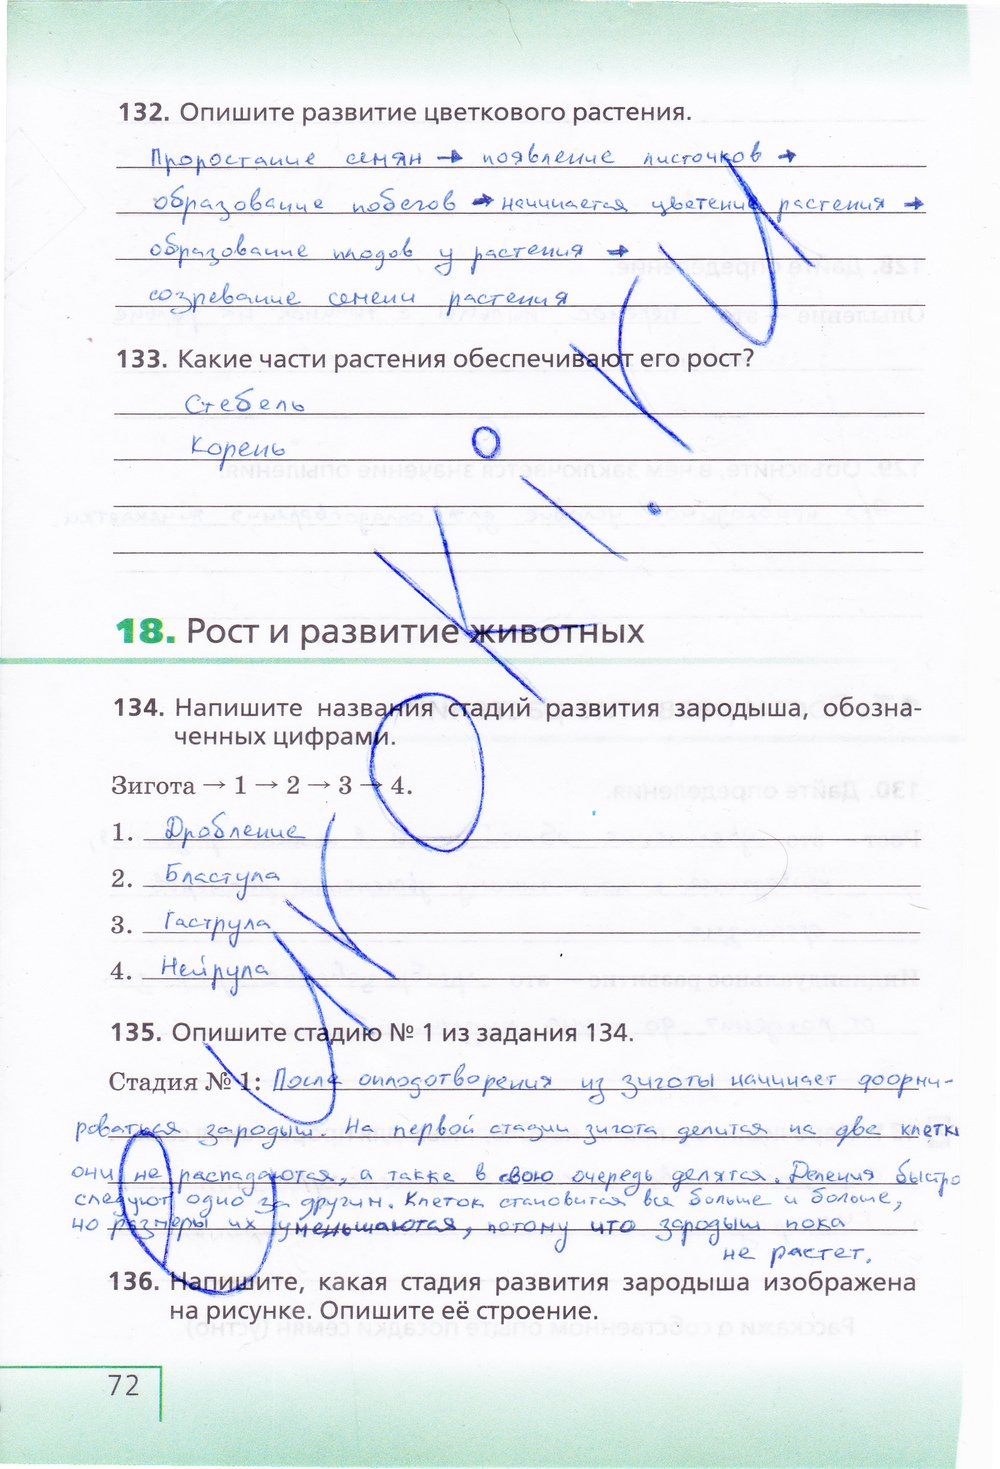 132. Опишите развитие цветкового растения.
Проростание семян → появление листочков →
образование побегов → начинается цветение растения →
образование плодов у растения →
созревание семени растения
133. Какие части растения обеспечивают его рост?
Стебель
Корень
18. Рост и развитие животных
134. Напишите названия стадий развития зародыша, обозна-
ченных цифрами.
Зигота → 1 → 2 → 3 → 4.
1. Дробление
2. Бластула
3. Гаструла
4. Нейрула
135. Опишите стадию № 1 из задания 134.
Стадия № 1: После оплодотворения из зиготы начинает форми-
роваться зародыш. На первой стадии зигота делится на две клетки
они не распадаются, а также в свою очередь делятся. Деления быстро
следуют одно за другим. Клеток становится все больше и больше,
но размеры их уменьшаются, потому что зародыш пока
не растет.
136. Напишите, какая стадия развития зародыша изображена
на рисунке. Опишите её строение.
72